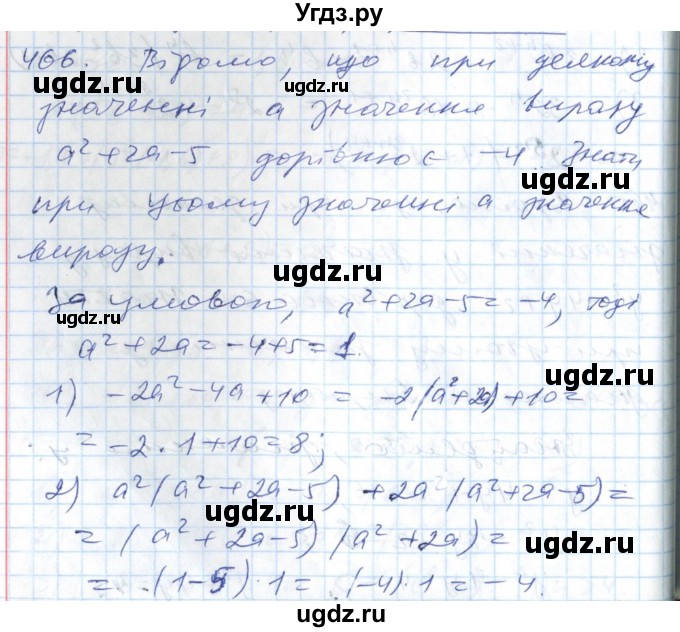 Угдз.ру
466. Відомо, що при деякому
значенні a значення виразу
a²+2a-5 дорівнює -4 Знати
при цьому значенні a значення
виразу.
За умовою, a²+2a-5=-4, тоді
a²+2a=-4+5=1.
1) -2a²-4a+10 = -2(a²+2a)+10=
=-2·1+10=8;
2) a²(a²+2a-5)+2a(a²+2a-5)=
=(a²+2a-5)(a²+2a)=
=(1-5)·1=(-4)·1=-4.
ugdz.ru
ugdz.ru
ugdz.ru
ugdz.ru
ugdz.ru
ugdz.ru
ugdz.ru
ugdz.ru
ugdz.ru
ugdz.ru
ugdz.ru